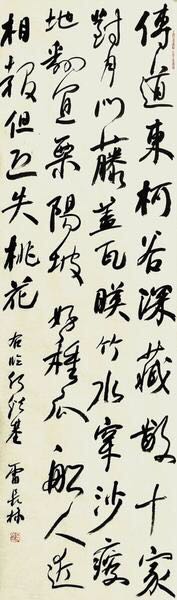 傳道東柯谷深藏數十家
對月門藤蓋瓦映竹水穿沙瘦
地翻宜粟陽坡好種瓜船人近
相報但恐失桃花
右臨
雷長林